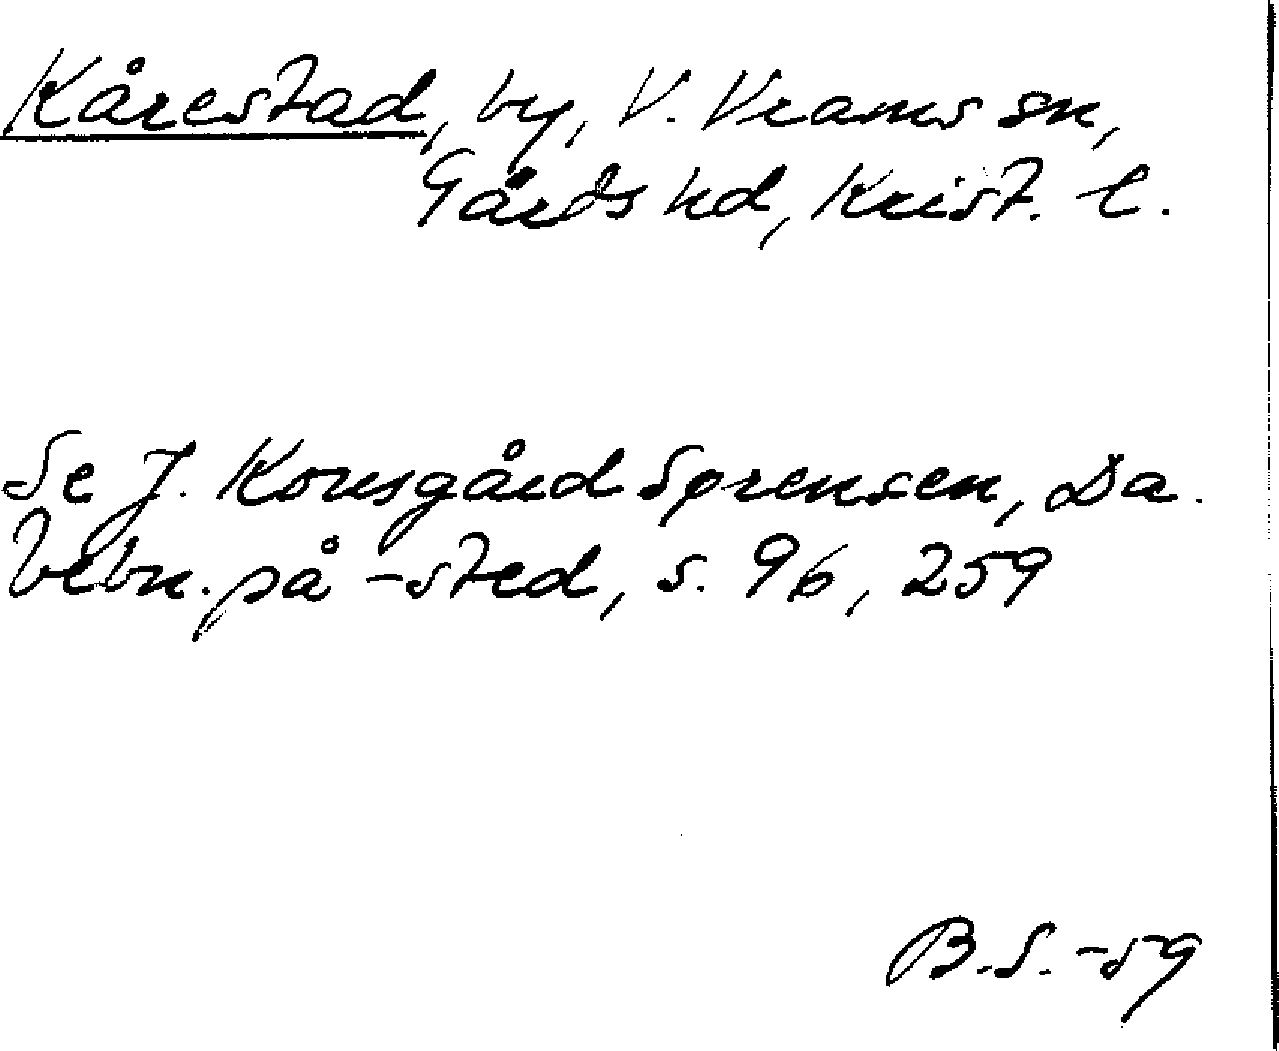 Kårestad, by, V. Vrams sn,
Gärds hd, Krist. l.
Se J. Kousgård Sørensen, Da.
bebn. på -sted, s. 96, 259
B.S. -59